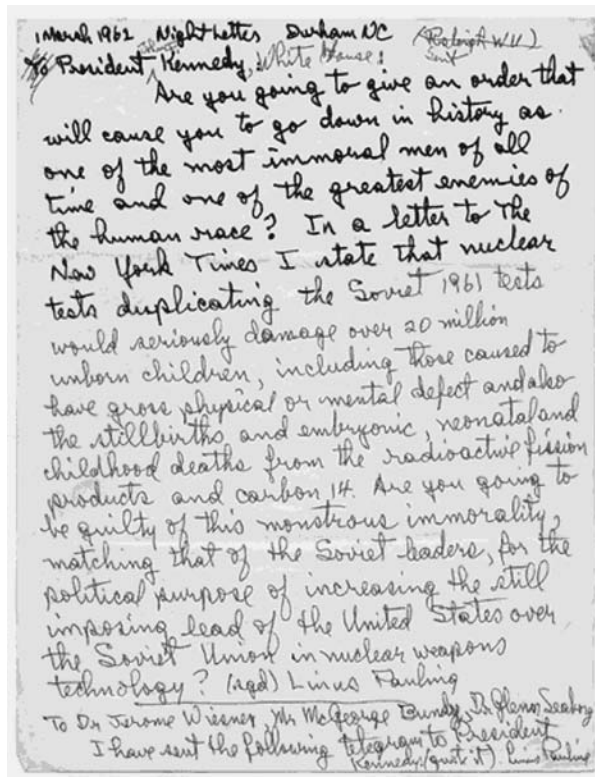 1 March 1962 Night Letter Durham NC (Raleigh W.U.)
Sent
To President John F. Kennedy, White House:
Are you going to give an order that
will cause you to go down in history as
one of the most immoral men of all
time and one of the greatest enemies of
the human race? In a letter to The
New York Times I state that nuclear
tests duplicating the Soviet 1961 tests
would seriously damage over 20 million
unborn children, including those caused to
have gross physical or mental defect and also
the stillbirths and embryonic, neonatal and
childhood deaths from the radioactive fission
products and carbon 14. Are you going to
be guilty of this monstrous immorality,
matching that of the Soviet leaders, for the
political purpose of increasing the still
imposing lead of the United States over
the Soviet Union in nuclear weapons
technology? (sgd) Linus Pauling
To Dr Jerome Wiesner, Mr McGeorge Bundy, Dr Glenn Seaborg
I have sent the following telegram to President
Kennedy: (quote it). Linus Pauling